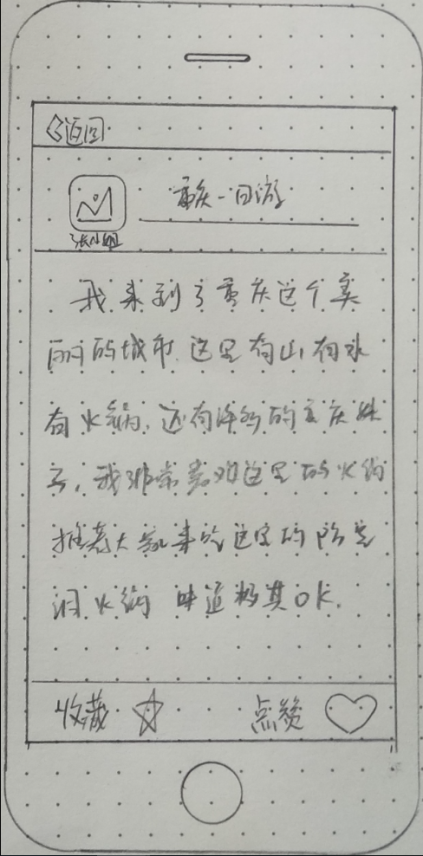 返回
重庆一日游
张小姐
我来到了重庆这个美
丽的城市.这里有山,有水
有火锅,还有许多的重庆妹
子,我非常喜欢这里的火锅
推荐大家来吃这里的
火锅 味道极其OK.
收藏 点赞